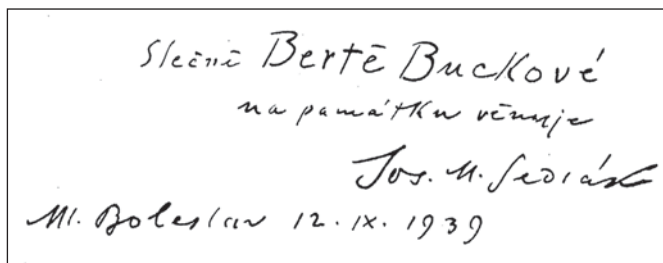 Slečně Bertě Buckové
na památku věnuje
Jos. M. Sedlák
Ml. Boleslav 12. IX. 1939